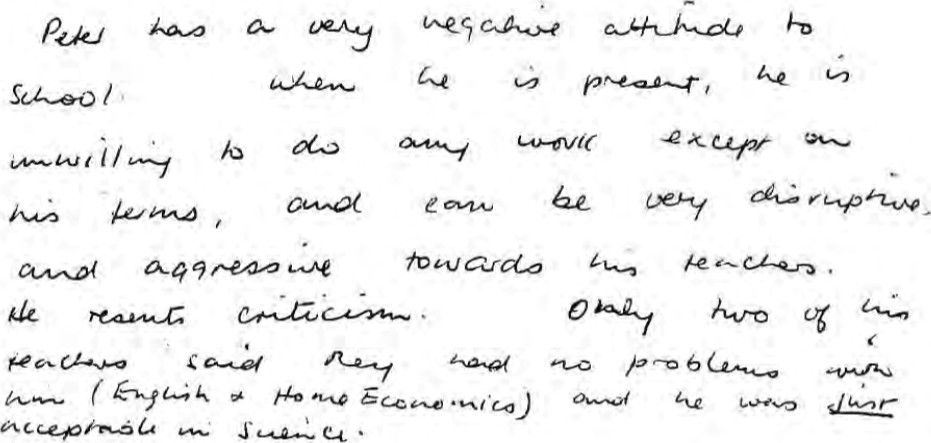 Peter has a very negative attitude to
School. When he is present, he is
unwilling to do any work except on
his terms, and can be very disruptive,
and aggressive towards his teachers.
He resents criticism. Only two of his
teachers said they had no problems with
him (English & Home Economics) and he was just
acceptable in Science.